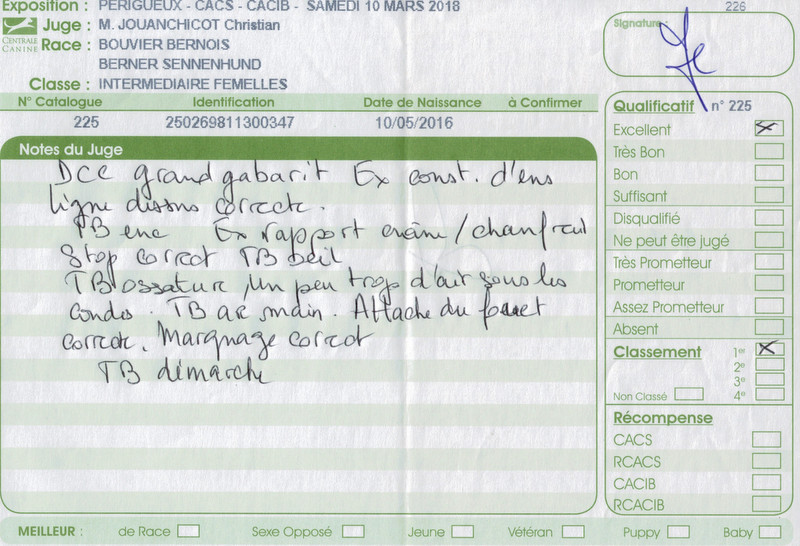 Exposition : PERIGUEUX - CACS - CACIB - SAMEDI 10 MARS 2018
Juge : M. JOUANCHICOT Christian
CENTRALE CANINE
Race : BOUVIER BERNOIS
BERNER SENNENHUND
Classe : INTERMEDIAIRE FEMELLES
N° Catalogue Identification Date de Naissance à Confirmer
225 250269811300347 10/05/2016
Notes du Juge
grand gabarit Ex const. d'ens
ligne dessus correcte.
TB enc Ex rapport crâne / chanfrein
Stop correct TB œil
TB ossature, un peu trop d'air sous les
coudes. TB ar main. Attache du fouet
correcte. Marquage correct
TB démarche
226
Signature :
Qualificatif n° 225
Excellent
Très Bon
Bon
Suffisant
Disqualifié
Ne peut être jugé
Très Prometteur
Prometteur
Assez Prometteur
Absent
Classement 1er
2e
3e
Non Classé 4e
Récompense
CACS
RCACS
CACIB
RCACIB
MEILLEUR : de Race Sexe Opposé Jeune Vétéran Puppy Baby